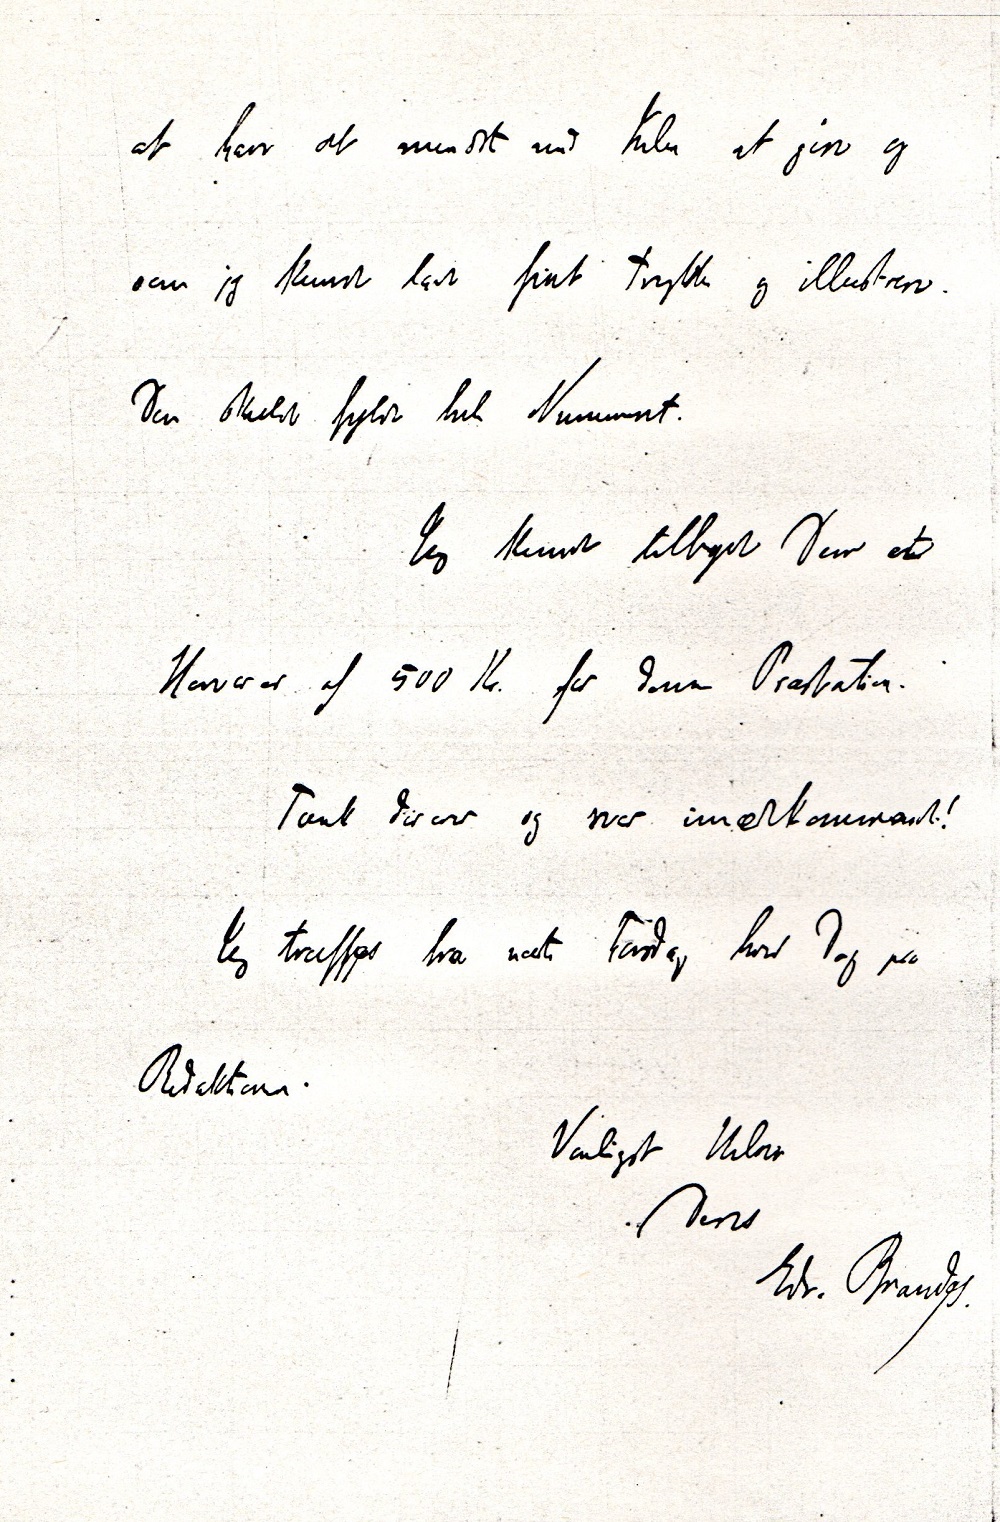 at have det mindst med Julen at gøre og
som jeg kunde lade fint trykke og illustrere.
Den skulde fylde hele Nummeret.
Jeg kunde tilbyde Dem et
Honorar af 500 Kr. for denne Præstation.
Tænk derover og svar imødekommende!
Jeg træffes fra næste Tirsdag hver Dag paa
Redaktionen.
Venligst Hilsen
Deres
Edv. Brandes.